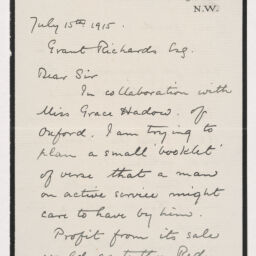 N.W.
July 15th 1915.
Grant Richards Esq.
Dear Sir
In collaboration with
Miss Grace Hadow. of
Oxford. I am trying to
plan a small 'booklet'
of verse that a man
on active service might
care to have by him.
Profit from its sale
Red